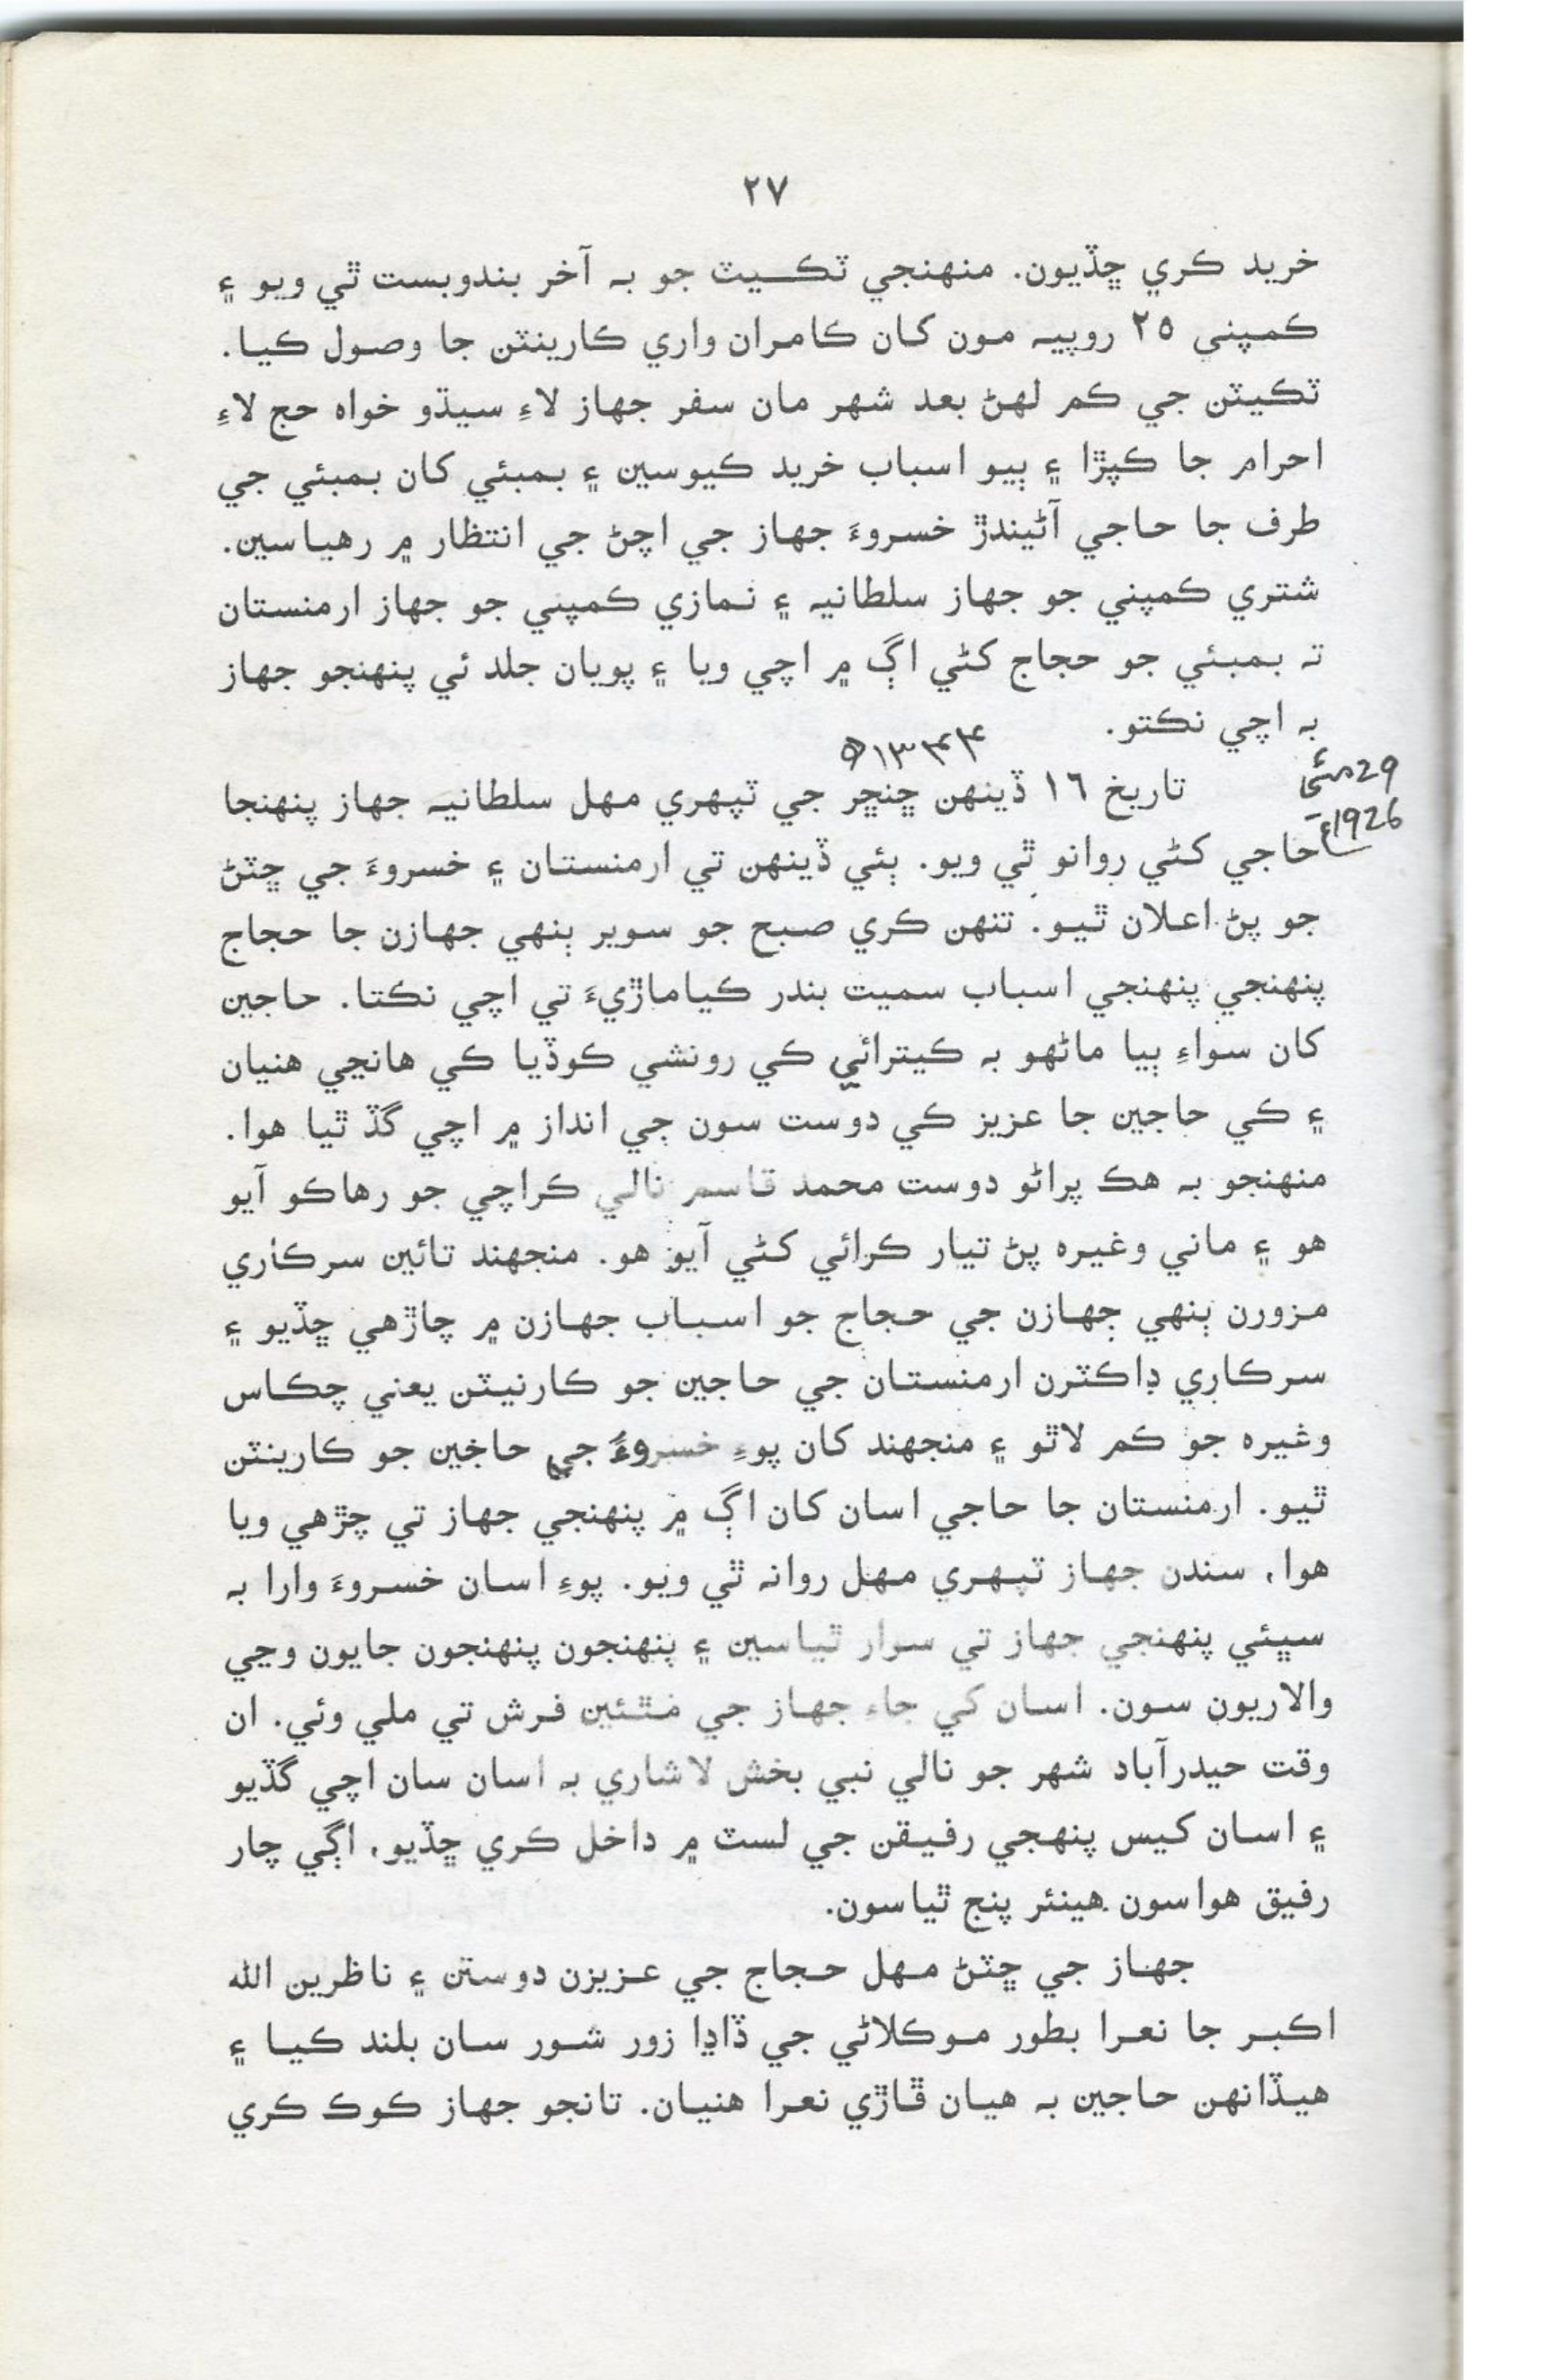 ٢٧
خريد ڪري ڇڏيون. منهنجي ٽڪيٽ جو بہ آخر بندوبست ٿي ويو ۽
ڪمپني ٢٥ روپيہ مون کان ڪامران واري ڪارينٽن جا وصول ڪيا.
ٽڪيٽن جي ڪم لهڻ بعد شهر مان سفر جهاز لاءِ سيڌو خواه حج لاءِ
احرام جا ڪپڙا ۽ ٻيو اسباب خريد ڪيوسين ۽ بمبئي کان بمبئي جي
طرف جا حاجي آڻيندڙ خسروءَ جهاز جي اچڻ جي انتظار ۾ رهياسين.
شتري ڪمپني جو جهاز سلطانيہ ۽ نمازي ڪمپني جو جهاز ارمنستان
تہ بمبئي جو حجاج کڻي اڳ ۾ اچي ويا ۽ پويان جلد ئي پنهنجو جهاز
بہ اچي نڪتو.
١٣٤٤ھ
29 مئي
1926ع
تاريخ ١٦ ڏينهن ڇنڇر جي ٽپهري مهل سلطانيہ جهاز پنهنجا
حاجي کڻي روانو ٿي ويو. ٻئي ڏينهن تي ارمنستان ۽ خسروءَ جي ڇٽڻ
جو پڻ اعلان ٿيو. تنهن ڪري صبح جو سوير ٻنهي جهازن جا حجاج
پنهنجي پنهنجي اسباب سميت بندر ڪياماڙيءَ تي اچي نڪتا. حاجين
کان سواءِ ٻيا ماڻهو بہ ڪيترائي ڪي رونشي ڪوڏيا ڪي هانڃي هنيان
۽ ڪي حاجين جا عزيز ڪي دوست سون جي انداز ۾ اچي گڏ ٿيا هوا.
منهنجو بہ هڪ پراڻو دوست محمد قاسم نالي ڪراچي جو رهاڪو آيو
هو ۽ ماني وغيره پڻ تيار ڪرائي کڻي آيو هو. منجهند تائين سرڪاري
مزورن ٻنهي جهازن جي حجاج جو اسباب جهازن ۾ چاڙهي ڇڏيو ۽
سرڪاري ڊاڪٽرن ارمنستان جي حاجين جو ڪارنيٽن يعني چڪاس
وغيره جو ڪم لاٿو ۽ منجهند کان پوءِ خسروءَ جي حاجين جو ڪارينٽن
ٿيو. ارمنستان جا حاجي اسان کان اڳ ۾ پنهنجي جهاز تي چڙهي ويا
هوا، سندن جهاز ٽپهري مهل روانہ ٿي ويو. پوءِ اسان خسروءَ وارا بہ
سڀئي پنهنجي جهاز تي سوار ٿياسين ۽ پنهنجون پنهنجون جايون وڃي
والاريون سون. اسان کي جاء جهاز جي مٿئين فرش تي ملي وئي. ان
وقت حيدرآباد شهر جو نالي نبي بخش لاشاري بہ اسان سان اچي گڏيو
۽ اسان کيس پنهجي رفيقن جي لسٽ ۾ داخل ڪري ڇڏيو، اڳي چار
رفيق هواسون هينئر پنج ٿياسون.
جهاز جي ڇٽڻ مهل حجاج جي عزيزن دوستن ۽ ناظرين الله
اڪبر جا نعرا بطور موڪلاڻي جي ڏاڍا زور شور سان بلند ڪيا ۽
هيڏانهن حاجين بہ هيان ڦاڙي نعرا هنيان. تانجو جهاز ڪوڪ ڪري